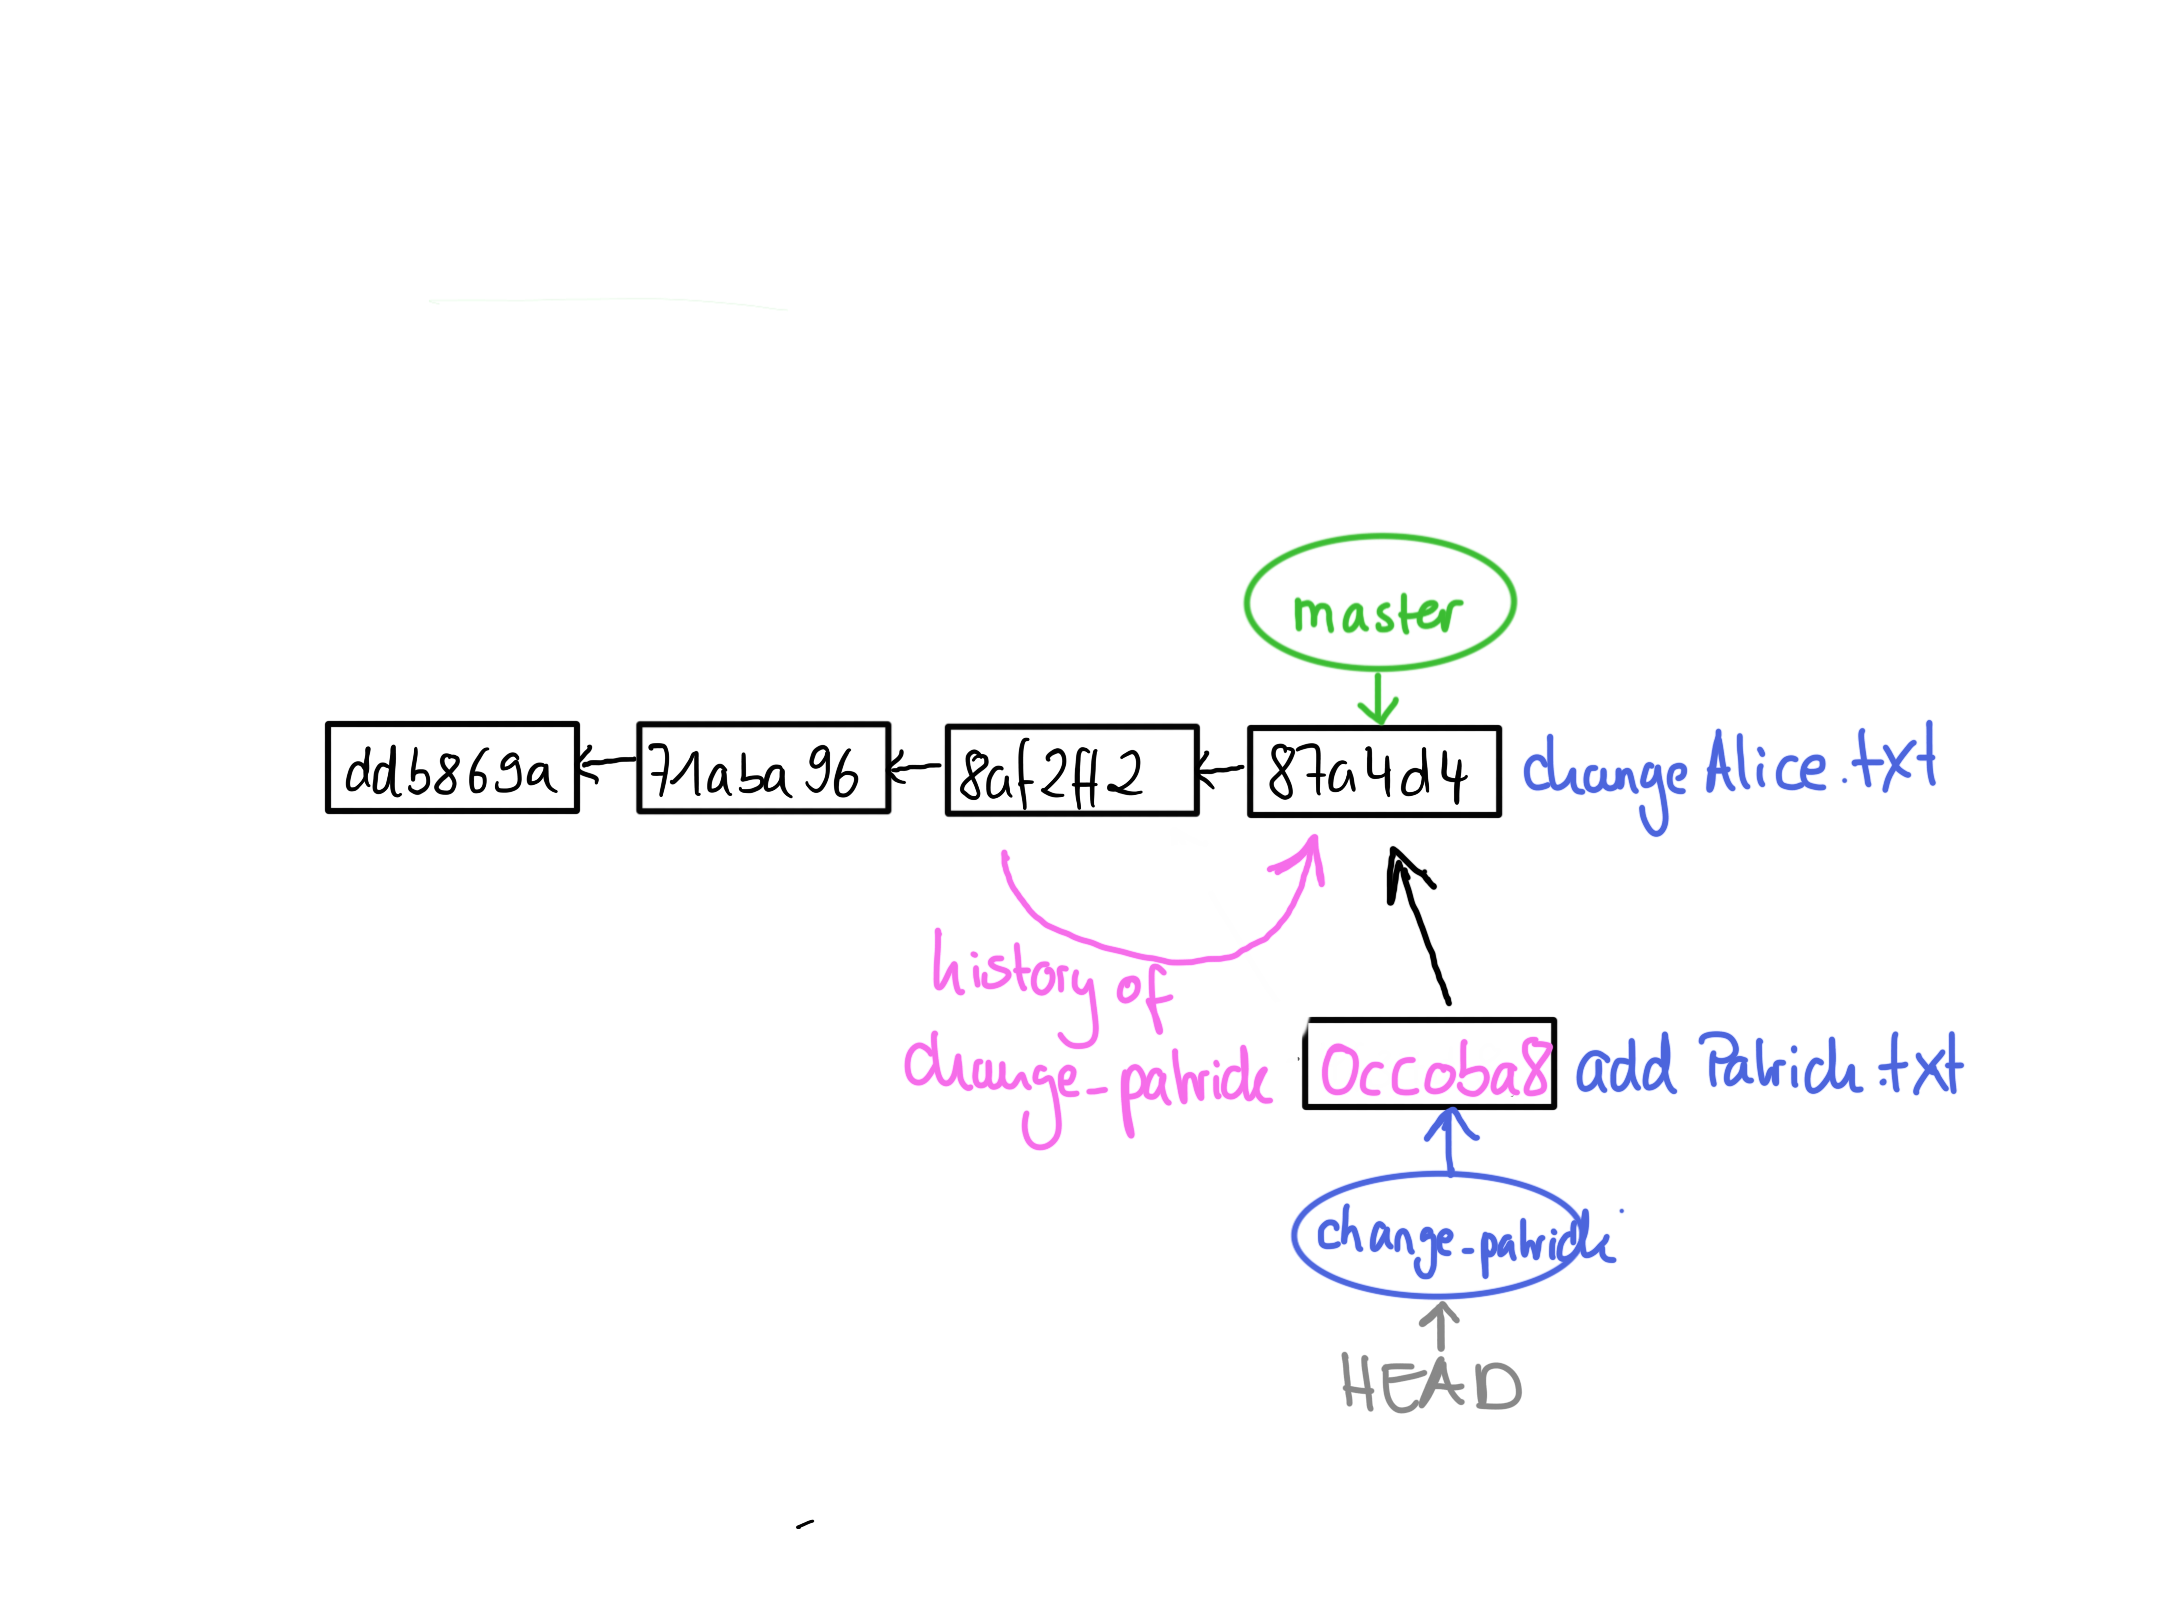 master
ddb869a
71aba96
8af2ff2
87a4d4
change Alice.txt
history of
change_patrick
0cc0ba8
add Patrick.txt
change_patrick
HEAD